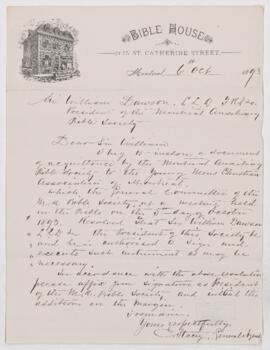 BIBLE HOUSE
2175 ST. CATHERINE STREET.
Montreal, 6th Oct 1893
Sir William Dawson, LLD FRS &c.
President of the Montreal Auxiliary
Bible Society
Dear Sir William
I beg to inclose a document
of acquittance by the Montreal Auxiliary
Bible Society to the Young Mens Christian
Association of Montreal.
which the General Committee of the
M.A Bible Society, at a meeting held
in the Bible on the 5 day of October
1893, Resolved that Sir William Dawson
LLD &c the President of this Society be
and he is authorised to sign and
execute such instrument as may be
necessary.
In accordance with the above resolution
please affix your signature as President
of the M.A. Bible Society, and initial the
addition on the margin.
I remain
Yours respectfully